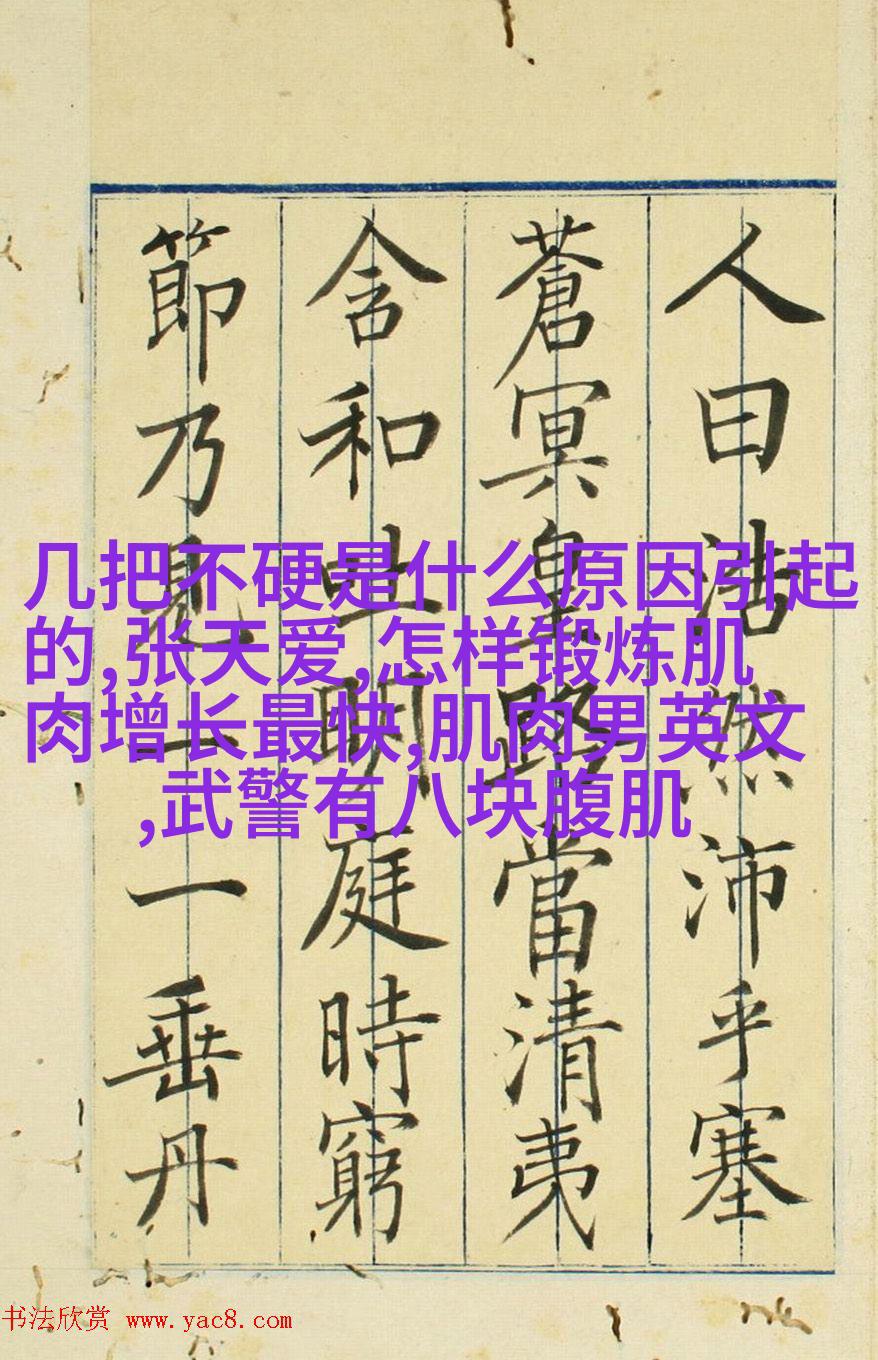 人曰浩然沛乎塞
蒼冥皇路當清夷
含和吐明庭時窮
節乃見一一垂丹
几把不硬是什么原因引起
的,张天爱,怎样锻炼肌
肉增长最快,肌肉男英文
,武警有八块腹肌
书法欣赏 www.yac8.com